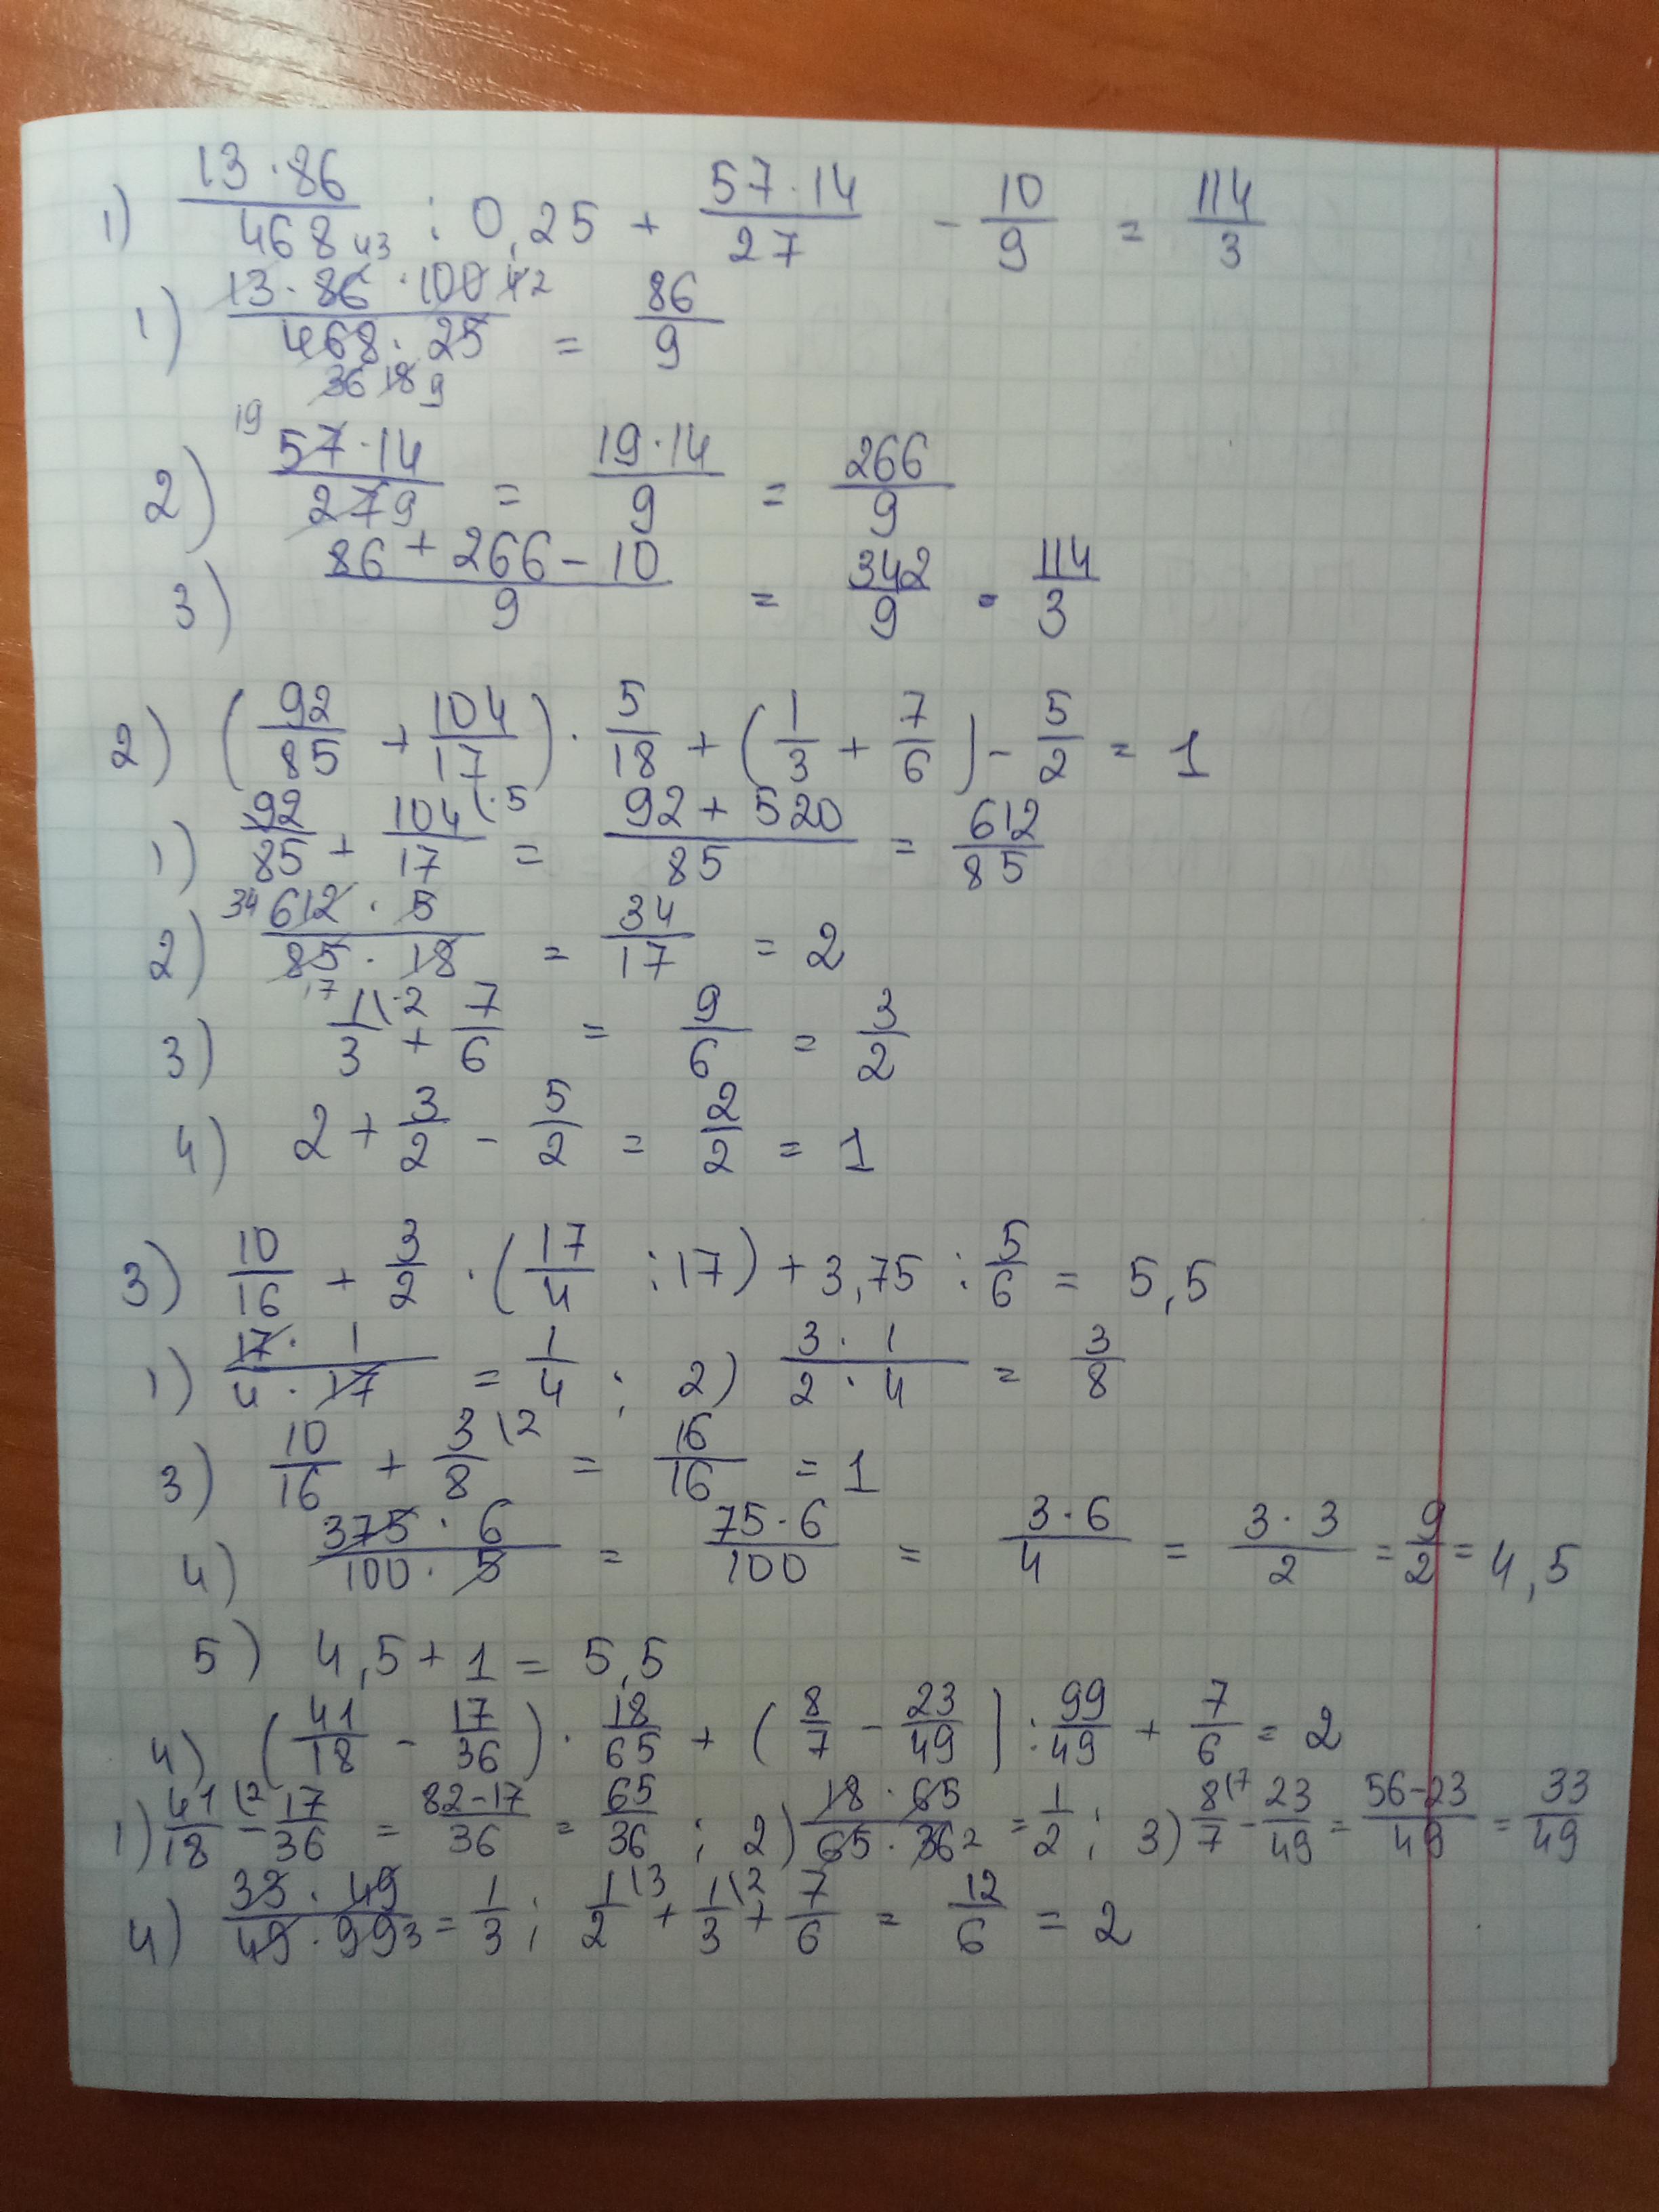 1) 13·86/468 : 0,25 + 57·14/27 - 10/9 = 114/3
1) 13·86·100/468·25 = 86/9
43 4 2
36 18 9
2) 57·14/27 = 19·14/9 = 266/9
19 9
3) 86+266-10/9 = 342/9 = 114/3
2) (92/85 + 104/17) · 5/18 + (1/3 + 7/6) - 5/2 = 1
1) 92/85 + 104/17 (·5 = 92+520/85 = 612/85
2) 34 612·5/85·18 = 34/17 = 2
17
3) 1/3 (·2 + 7/6 = 9/6 = 3/2
4) 2 + 3/2 - 5/2 = 2/2 = 1
3) 10/16 + 3/2 · (17/4 : 17) + 3,75 : 5/6 = 5,5
1) 17·1/4·17 = 1/4 ; 2) 3·1/2·4 = 3/8
3) 10/16 + 3/8 (2 = 16/16 = 1
4) 375·6/100·5 = 75·6/100 = 3·6/4 = 3·3/2 = 9/2 = 4,5
5) 4,5+1 = 5,5
4) (41/18 - 17/36) · 18/65 + (8/7 - 23/49) : 99/49 + 7/6 = 2
1) 41/18 (2 - 17/36 = 82-17/36 = 65/36 ; 2) 18·65/65·36 2 = 1/2 ; 3) 8/7 (7 - 23/49 = 56-23/49 = 33/49
4) 33·49/49·99 3 = 1/3 ; 1/2 (3 + 1/3 (2 + 7/6 = 12/6 = 2